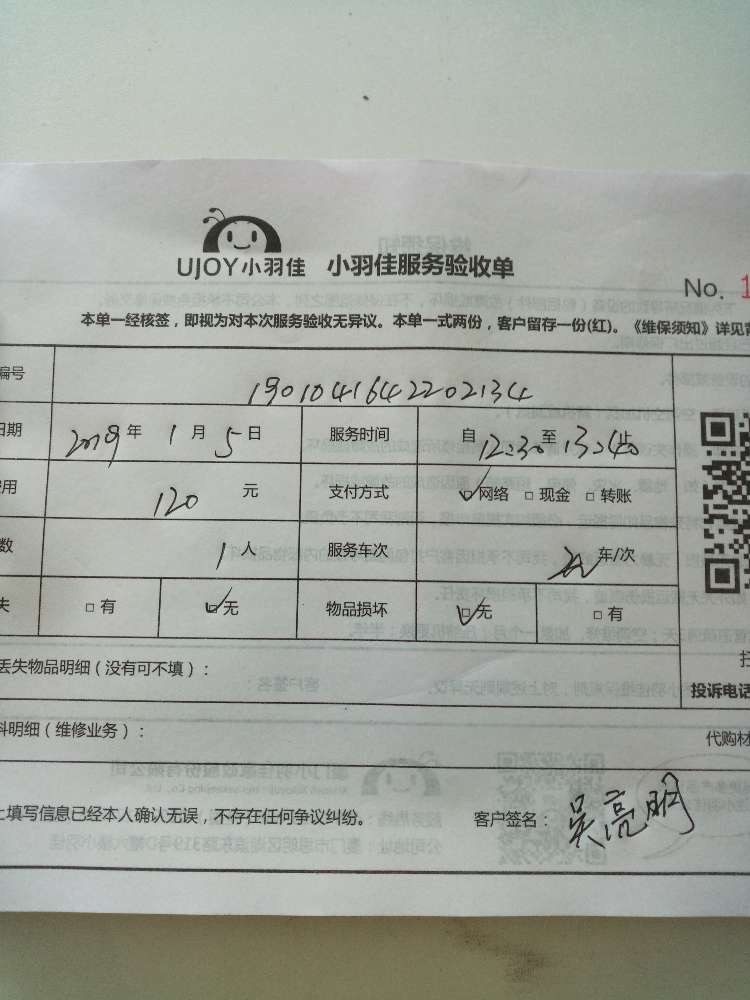 UJOY小羽佳 小羽佳服务验收单
No. 1
本单一经核签，即视为对本次服务验收无异议。本单一式两份，客户留存一份(红)。《维保须知》详见背
编号 1901041642202134
日期 2019年 1月 5日 服务时间 自12:30至13:40止
费用 120 元 支付方式 ☑网络 □现金 □转账
数 1人 服务车次 车/次
失 □有 ☑无 物品损坏 ☑无 □有
丢失物品明细（没有可不填）：
扫
投诉电话
料明细（维修业务）：
代购材
上填写信息已经本人确认无误，不存在任何争议纠纷。 客户签名：吴亮明